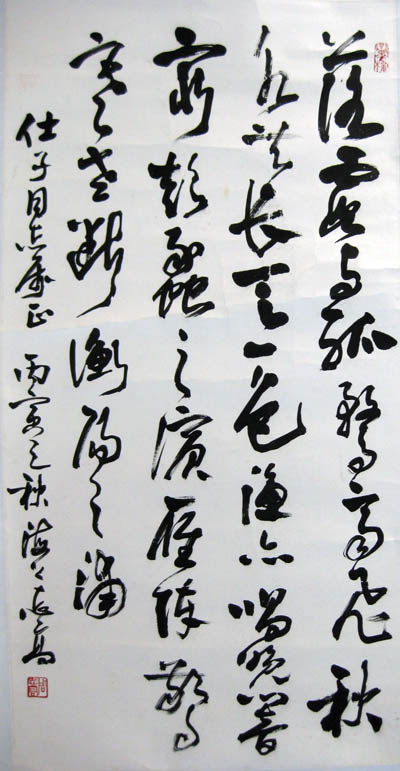 落霞与孤鶩齊飛秋
水共長天一色漁舟唱晚響
窮彭蠡之濱雁陣驚
寒聲斷衡陽之浦
仕子同志屬正 丙寅之秋 海上